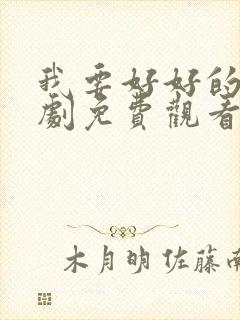 我要好好的
劇免費觀看
木月明 佐藤南